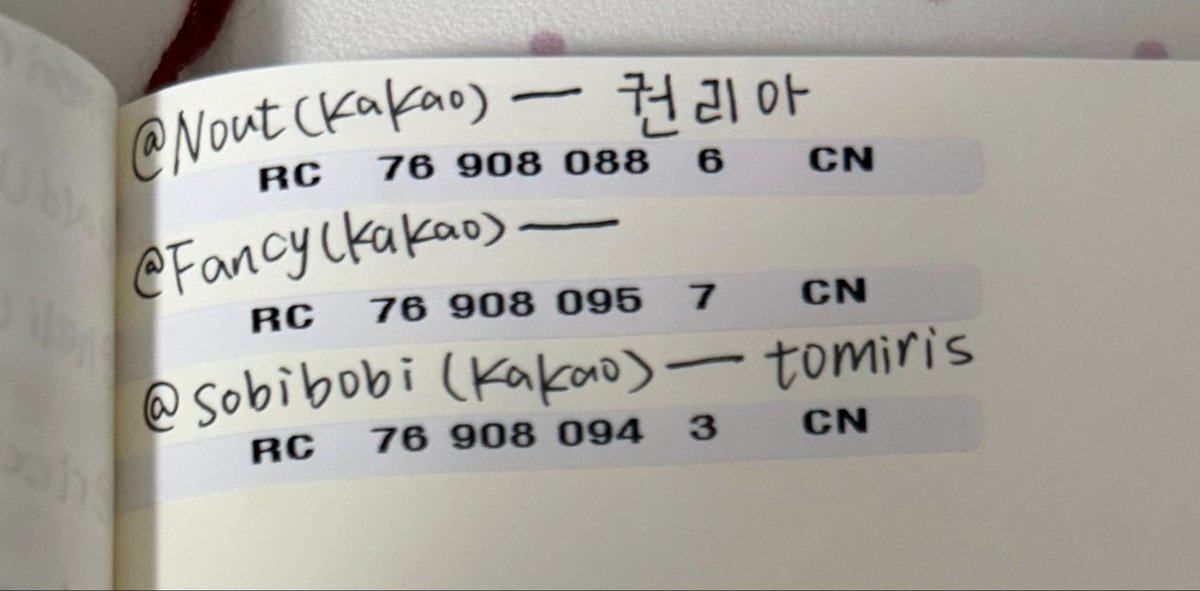 @Nout (Kakao) — 권리아
RC 76 908 088 6 CN
@Fancy (Kakao) —
RC 76 908 095 7 CN
@sobibobi (Kakao) — tomiris
RC 76 908 094 3 CN